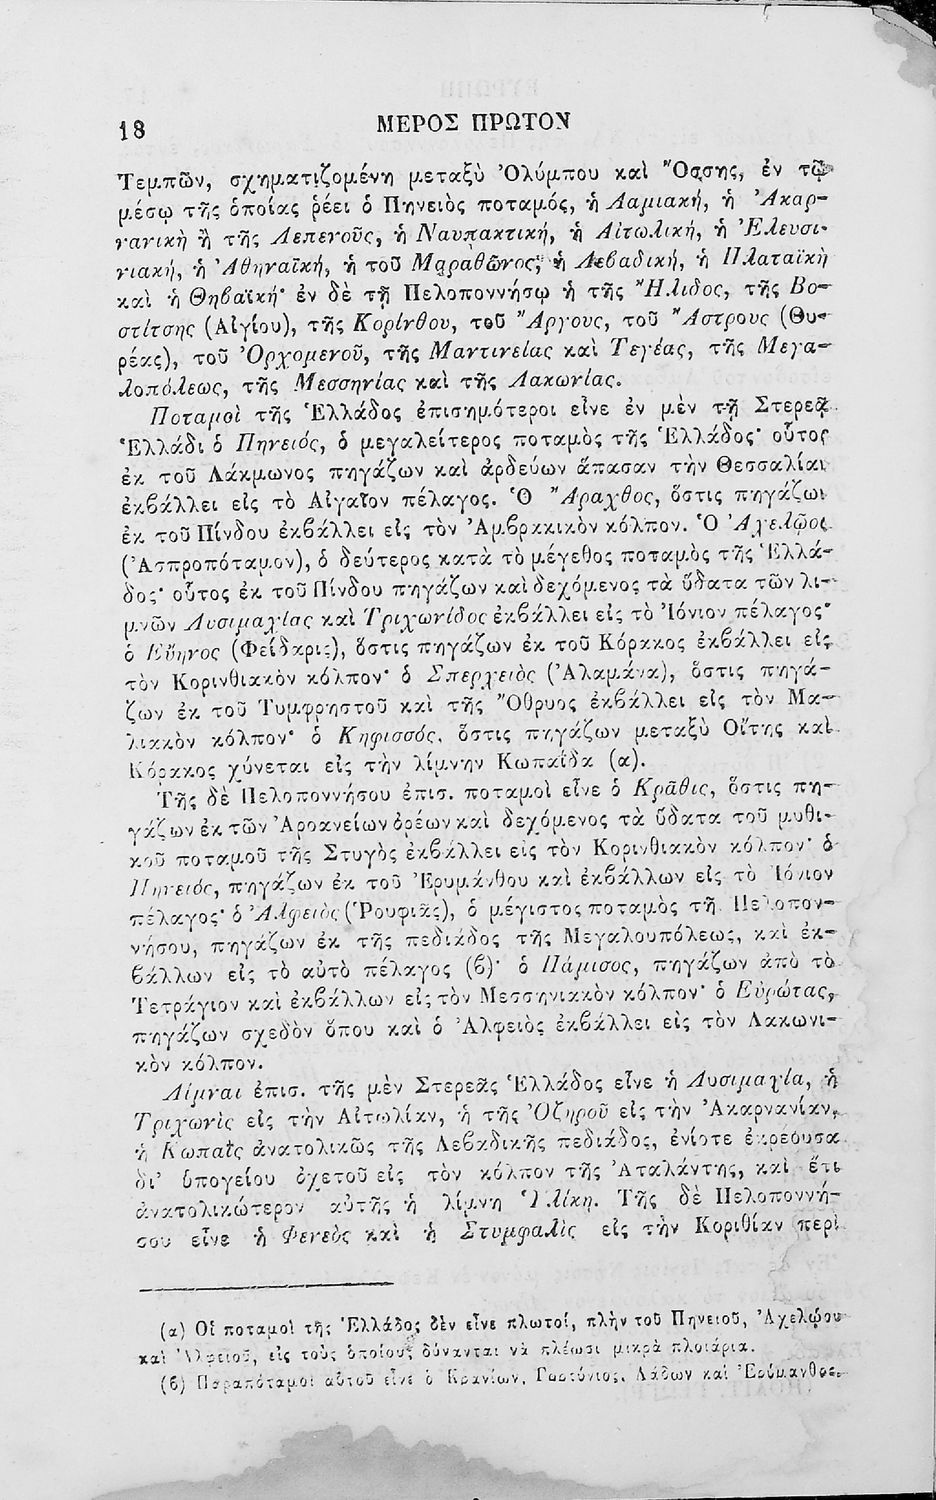 18
ΜΕΡΟΣ ΠΡΩΤΟΝ
Τεμπῶν, σχηματιζομένη μεταξὺ Ὀλύμπου καὶ Ὄσσης, ἐν τῷ
μέσῳ τῆς ὁποίας ῥέει ὁ Πηνειὸς ποταμός, ἡ Λαμιακή, ἡ Ἀκαρ-
νανικὴ ἢ τῆς Λεπενοῦς, ἡ Ναυπακτική, ἡ Αἰτωλική, ἡ Ἐλευσι-
νιακή, ἡ Ἀθηναϊκή, ἡ τοῦ Μαραθῶνος, ἡ Λεβαδική, ἡ Πλαταϊκὴ
καὶ ἡ Θηβαϊκή· ἐν δὲ τῇ Πελοποννήσῳ ἡ τῆς Ἤλιδος, τῆς Βο-
στίτσης (Αἰγίου), τῆς Κορίνθου, τοῦ Ἄργους, τοῦ Ἄστρους (Θυ-
ρέας), τοῦ Ὀρχομενοῦ, τῆς Μαντινείας καὶ Τεγέας, τῆς Μεγα-
λοπόλεως, τῆς Μεσσηνίας καὶ τῆς Λακωνίας.
Ποταμοὶ τῆς Ἑλλάδος ἐπισημότεροι εἶνε ἐν μὲν τῇ Στερεᾷ
Ἑλλάδι ὁ Πηνειός, ὁ μεγαλείτερος ποταμὸς τῆς Ἑλλάδος· οὗτος
ἐκ τοῦ Λάκμωνος πηγάζων καὶ ἀρδεύων ἅπασαν τὴν Θεσσαλίαν
ἐκβάλλει εἰς τὸ Αἰγαῖον πέλαγος. Ὁ Ἄραχθος, ὅστις πηγάζων
ἐκ τοῦ Πίνδου ἐκβάλλει εἰς τὸν Ἀμβρακικὸν κόλπον. Ὁ Ἀχελῷος
(Ἀσπροπόταμον), ὁ δεύτερος κατὰ τὸ μέγεθος ποταμὸς τῆς Ἑλλά-
δος· οὗτος ἐκ τοῦ Πίνδου πηγάζων καὶ δεχόμενος τὰ ὕδατα τῶν λι-
μνῶν Λυσιμαχίας καὶ Τριχωνίδος ἐκβάλλει εἰς τὸ Ἰόνιον πέλαγος·
ὁ Εὔηνος (Φείδαρις), ὅστις πηγάζων ἐκ τοῦ Κόρακος ἐκβάλλει εἰς
τὸν Κορινθιακὸν κόλπον· ὁ Σπερχειὸς (Ἀλαμάνα), ὅστις πηγά-
ζων ἐκ τοῦ Τυμφρηστοῦ καὶ τῆς Ὄθρυος ἐκβάλλει εἰς τὸν Μα-
λιακὸν κόλπον· ὁ Κηφισσός, ὅστις πηγάζων μεταξὺ Οἴτης καὶ
Κόρακος χύνεται εἰς τὴν λίμνην Κωπαΐδα (α).
Τῆς δὲ Πελοποννήσου ἐπισ. ποταμοὶ εἶνε ὁ Κρᾶθις, ὅστις πη-
γάζων ἐκ τῶν Ἀροανείων ὀρέων καὶ δεχόμενος τὰ ὕδατα τοῦ μυθι-
κοῦ ποταμοῦ τῆς Στυγὸς ἐκβάλλει εἰς τὸν Κορινθιακὸν κόλπον· ὁ
Πηνειός, πηγάζων ἐκ τοῦ Ἐρυμάνθου καὶ ἐκβάλλων εἰς τὸ Ἰόνιον
πέλαγος· ὁ Ἀλφειὸς (Ῥουφιᾶς), ὁ μέγιστος ποταμὸς τῆ Πελοπον-
νήσου, πηγάζων ἐκ τῆς πεδιάδος τῆς Μεγαλουπόλεως, καὶ ἐκ-
βάλλων εἰς τὸ αὐτὸ πέλαγος (β)· ὁ Πάμισος, πηγάζων ἀπὸ τὸ
Τετράγιον καὶ ἐκβάλλων εἰς τὸν Μεσσηνιακὸν κόλπον· ὁ Εὐρώτας,
πηγάζων σχεδὸν ὅπου καὶ ὁ Ἀλφειὸς ἐκβάλλει εἰς τὸν Λακωνι-
κὸν κόλπον.
Λίμναι ἐπισ. τῆς μὲν Στερεᾶς Ἑλλάδος εἶνε ἡ Λυσιμαχία, ἡ
Τριχωνὶς εἰς τὴν Αἰτωλίαν, ἡ τῆς Ὀζηροῦ εἰς τὴν Ἀκαρνανίαν,
ἡ Κωπαῒς ἀνατολικῶς τῆς Λεβαδικῆς πεδιάδος, ἐνίοτε ἐκρέουσα
δι' ὑπογείου ὀχετοῦ εἰς τὸν κόλπον τῆς Ἀταλάντης, καὶ ἔτι
ἀνατολικώτερον αὐτῆς ἡ λίμνη Ὑλίκη. Τῆς δὲ Πελοποννή-
σου εἶνε ἡ Φενεὸς καὶ ἡ Στυμφαλὶς εἰς τὴν Κοριθίαν περὶ
(α) Οἱ ποταμοὶ τῆς Ἑλλάδος δὲν εἶνε πλωτοί, πλὴν τοῦ Πηνειοῦ, Ἀχελῴου
καὶ Ἀλφειοῦ, εἰς τοὺς ὁποίους δύνανται νὰ πλέωσι μικρὰ πλοιάρια.
(β) Παραπόταμοι αὐτοῦ εἶνε ὁ Κρανίων, Γορτύνιος, Λάδων καὶ Ἐρύμανθος.